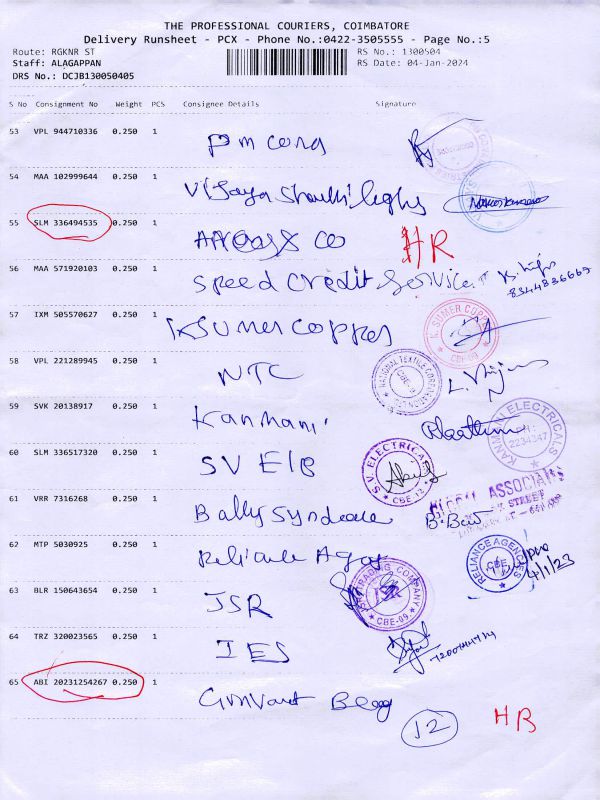 THE PROFESSIONAL COURIERS, COIMBATORE
Delivery Runsheet - PCX - Phone No.:0422-3505555 - Page No.:5
Route: RGKNR ST
RS No.: 1300504
Staff: ALAGAPPAN
RS Date: 04-Jan-2024
DRS No.: DCJB130050405
S No Consignment No Weight PCS Consignee Details Signature
53 VPL 944710336 0.250 1
54 MAA 102999644 0.250 1
Vijaya
55 SLM 336494535 0.250 1
HR
56 MAA 571920103 0.250 1
Speed Credit Service
8344836669
57 IXM 505570627 0.250 1
K. SUMER COPPER
CBE-09
58 VPL 221289945 0.250 1
NTC
NATIONAL TEXTILE CORPORATION
59 SVK 20138917 0.250 1
Kanmani
KANMANI ELECTRICALS
2234347
60 SLM 336517320 0.250 1
SV E/B
S.V. ELECTRICALS
CBE-12
61 VRR 7316268 0.250 1
Bally Syndicate
ASSOCIATES
STREET
62 MTP 5030925 0.250 1
Reliance Agcy
RELIANCE AGENCIES
CBE
4/1/23
63 BLR 150643654 0.250 1
JSR
JSR TRADING COMPANY
CBE-09
64 TRZ 320023565 0.250 1
IES
65 ABI 20231254267 0.250 1
12
HR